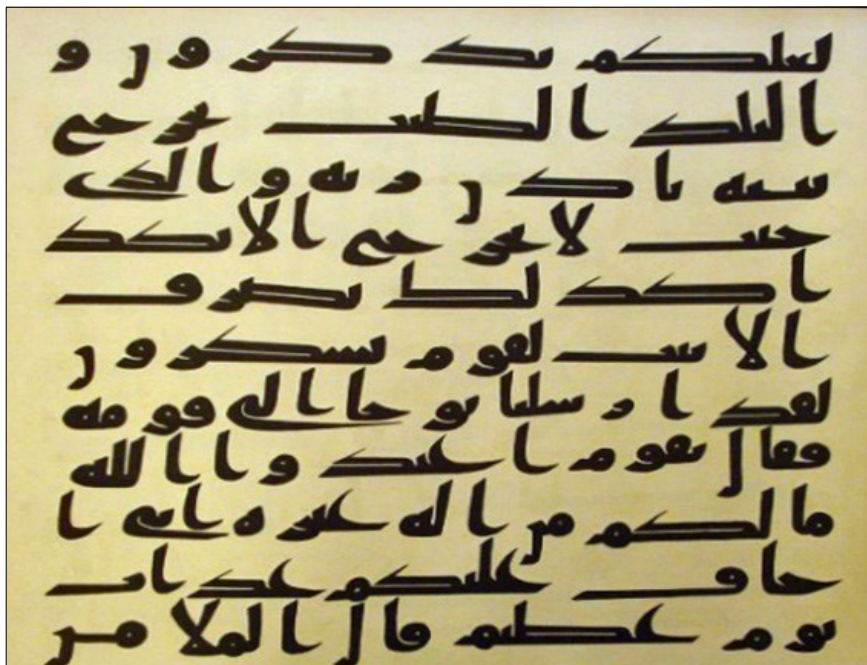 لعلكم تذكرون و
البلد الطيب يخرج
نبته باذن ربه والذي
خبث لا يخرج الا نكد
ا كذلك نصرف
الايت لقوم يشكرون
لقد ارسلنا نوحا الى قومه
فقال يقوم اعبدوا الله
ما لكم من اله غيره اني ا
خاف عليكم عذاب
يوم عظيم قال الملا من